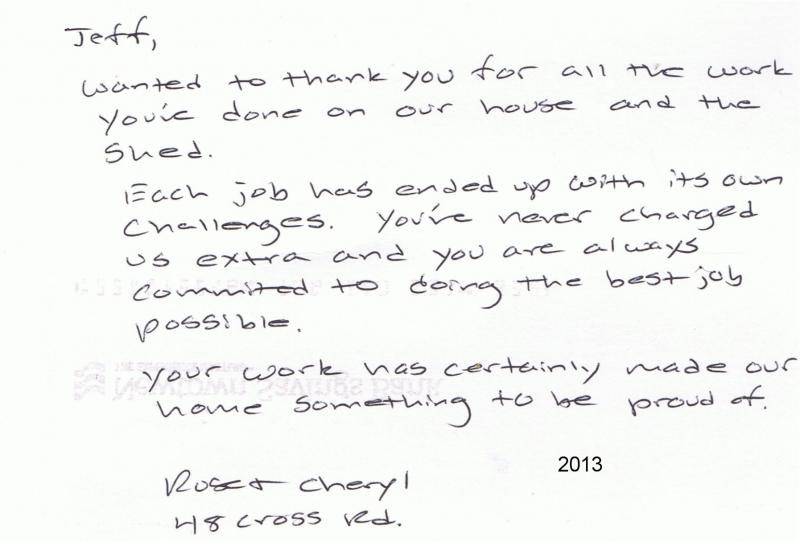 Jeff,
Wanted to thank you for all the work
you've done on our house and the
shed.
Each job has ended up with its own
challenges. You've never charged
us extra and you are always
commited to doing the best job
possible.
Your work has certainly made our
home something to be proud of.
2013
Cheryl
48 Cross Rd.
Newtown Savings Bank